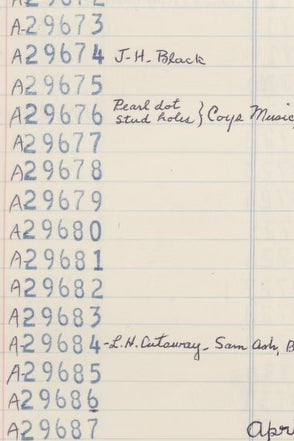 A-29673
A29674 J-H. Black
A29675
Pearl dot
A29676 stud holes } Coys Music,
A29677
A29678
A29679
A29680
A-29681
A29682
A29683
A-29684-L.H. Cutaway- Sam Ash, B
A-29685
A-29686
A29687 Apr